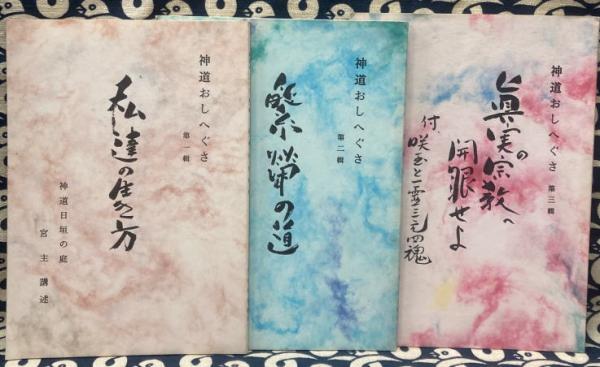 神道おしへぐさ 第一輯
私達の生き方
神道日垣の庭
宮主講述
神道おしへぐさ 第二輯
繁榮の道
神道おしへぐさ 第三輯
眞実の宗教へ
開眼せよ
付、咲玉と一霊三元四魂